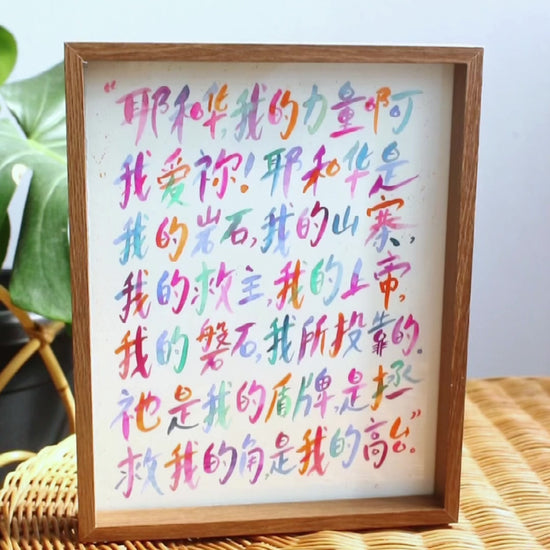 “耶和华,我的力量啊
我爱祢!耶和华是
我的岩石,我的山寨,
我的救主,我的上帝,
我的磐石,我所投靠的。
祂是我的盾牌,是拯
救我的角,是我的高台。”